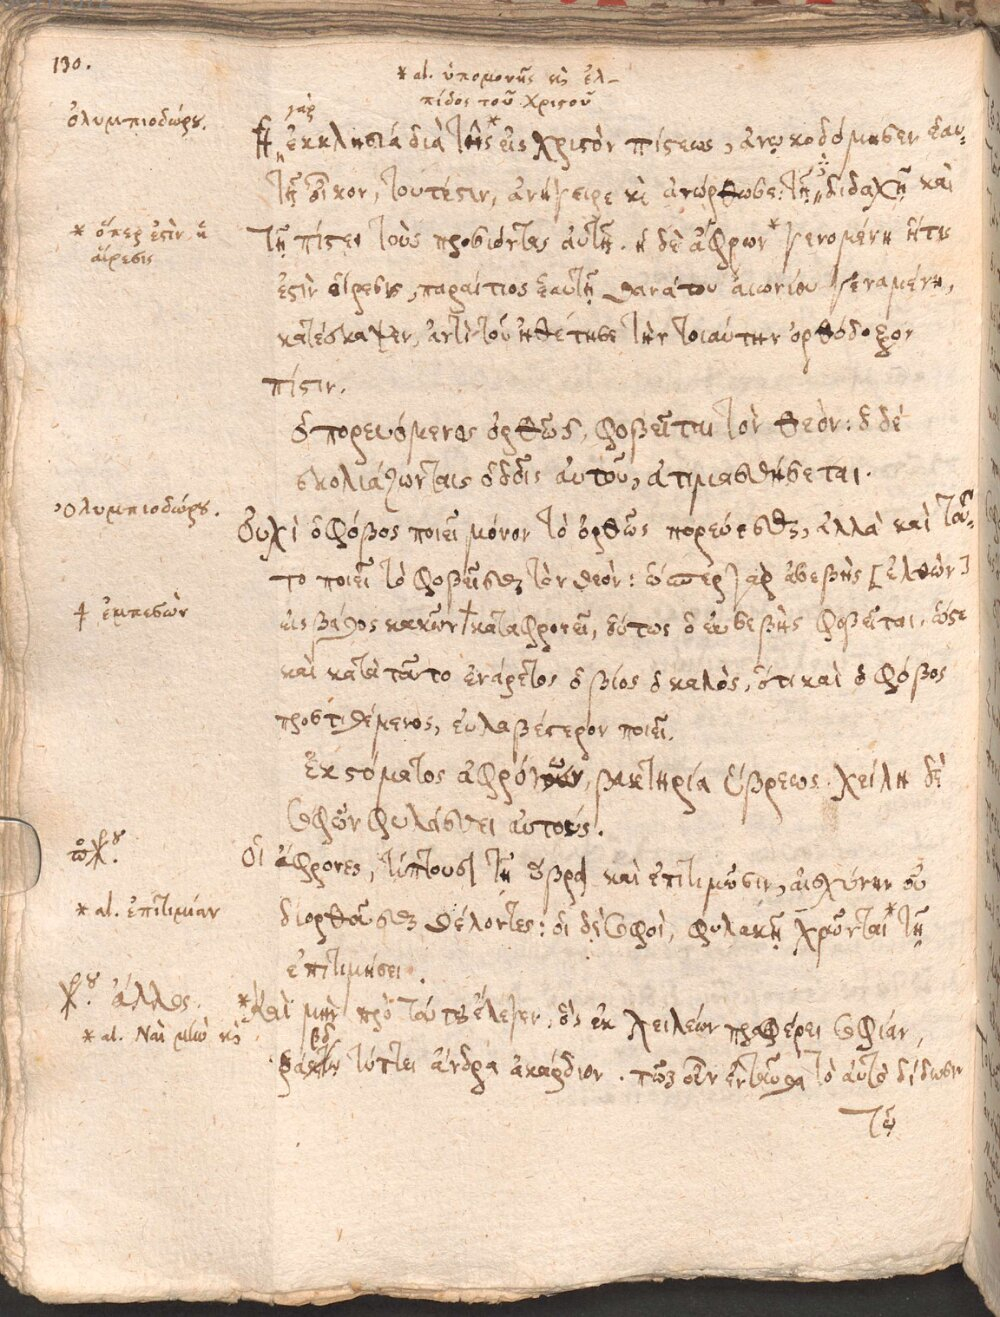 130.
* al. ὑπομονῆς καὶ ἐλ-
πίδος τοῦ Χριστοῦ
ὀλυμπιοδώρου.
γὰρ
Ἡ ἐκκλησία διὰ τῆς* εἰς χριστὸν πίστεως, ἀνῳκοδόμησεν ἑαυ-
τῇ οἶκον, τουτέστιν, ἀνήγειρε καὶ ἀνώρθωσε τῇ διδαχῇ καὶ
* ὅπερ ἐστὶν ἡ
αἵρεσις
τῇ πίστει τοὺς προσιόντας αὐτῇ. ἡ δὲ ἄφρων* γενομένη ἥτις
ἐστὶν αἵρεσις, παραίτιος ἑαυτῇ θανάτου αἰωνίου γεναμένη,
κατέσκαψεν, ἀντὶ τοῦ ἠθέτησε τὴν τοιαύτην ὀρθόδοξον
πίστιν.
Ὁ πορευόμενος ὀρθῶς, φοβεῖται τὸν θεόν: ὁ δὲ
σκολιάζων ταῖς ὁδοῖς αὐτοῦ, ἀτιμασθήσεται.
Ὀλυμπιοδώρου.
Οὐχὶ ὁ φόβος ποιεῖ μόνον τὸ ὀρθῶς πορεύεσθαι, ἀλλὰ καὶ τοῦ-
το ποιεῖ τὸ φοβεῖσθαι τὸν θεόν: ὥσπερ γὰρ ἀσεβὴς [ἐλθὼν]
† ἐμπεσὼν
εἰς βάθος κακῶν † καταφρονεῖ, οὕτως ὁ εὐσεβὴς φοβεῖται, ὥστε
καὶ κατὰ τοῦτο ἐνάρετος ὁ βίος ὁ καλὸς, ὅτι καὶ ὁ φόβος
προστιθέμενος, εὐλαβέστερον ποιεῖ.
Ἐκ στόματος ἀφρόνων, βακτηρία ὕβρεως. χείλη δὲ
σοφῶν φυλάσσει αὐτούς.
Οἱ ἄφρονες, τύπτουσι τῇ ὕβρει καὶ ἐπιτιμῶσιν, αἰσχύνην οὐ
* al. ἐπιτιμίαν
διορθοῦσθαι θέλοντες: οἱ δὲ σοφοὶ, φυλακῇ χρῶνται* τῇ
ἐπιτιμήσει.
ἄλλος.
* Καὶ μὴν πρὸ τούτου ἔλεγεν, ὃς ἐκ χειλέων προφέρει σοφίαν,
* al. Ναὶ μὴν καὶ
ῥάβδῳ τύπτει ἄνδρα ἀκάρδιον. πῶς οὖν ἐνταῦθα τὸ αὐτὸ δίδωσιν
τῷ